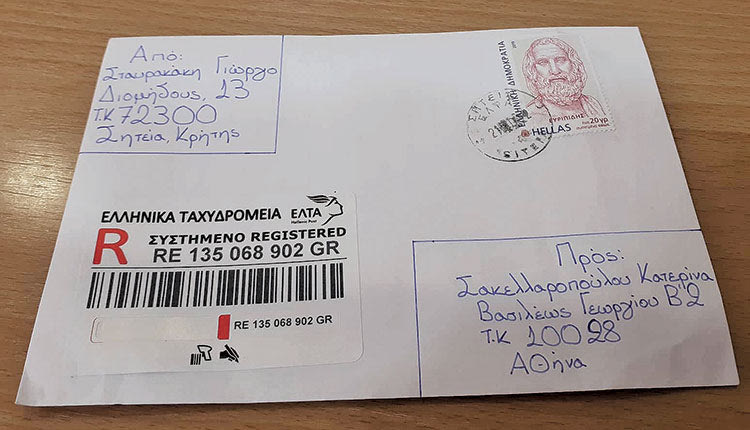 Από:
Σταυρακάκη Γιώργο
Διομήδους, 13
Τ.Κ 72300
Σητεία, Κρήτης
ΕΛΛΗΝΙΚΗ ΔΗΜΟΚΡΑΤΙΑ
ΕΥΡΙΠΙΔΗΣ
έως 20γρ
HELLAS
SITEIA
ΕΛΛΗΝΙΚΑ ΤΑΧΥΔΡΟΜΕΙΑ ΕΛΤΑ
Hellenic Post
R ΣΥΣΤΗΜΕΝΟ REGISTERED
RE 135 068 902 GR
RE 135 068 902 GR
Πρός:
Σακελλαροπούλου Κατερίνα
Βασιλέως Γεωργίου Β'2
Τ.Κ 10028
Αθήνα